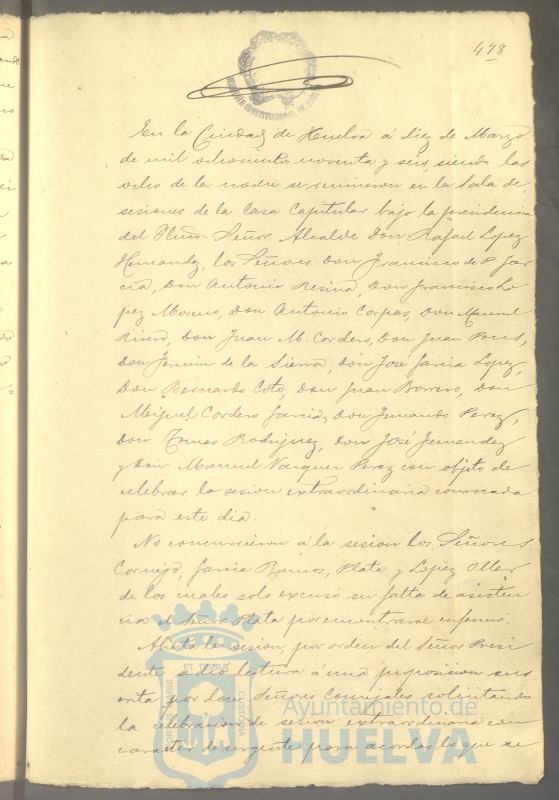 478
En la Ciudad de Huelva á diez de Marzo
de mil ochocientos noventa y seis, siendo las
ocho de la noche se reunieron en la Sala de
sesiones de la Casa Capitular bajo la presidencia
del Yltmo. Señor Alcalde Don Rafael Lopez
Hernandez, los Señores Don Francisco de P. Gar
cia, Don Antonio Resina, Don Francisco Lo
pez Moreno, Don Antonio Corpas, Don Manuel
Rivero, Don Juan M. Cordero, Don Juan Pons,
Don Fermin de la Sierra, Don José Garcia Lopez,
Don Bernardo Coto, Don Juan Borrero, Don
Miguel Cordero Garcia, Don Fernando Perez,
Don Tomas Rodriguez, Don José Fernandez
y Don Manuel Vazquez Perez con objeto de
celebrar la sesion extraordinaria convocada
para este dia.
No concurrieron á la sesion los Señores
Garcia Ramos, Plata y Lopez
de los cuales solo escusó su falta de asisten
cia el Señor Plata por encontrarse enfermo.
Abierta la sesion, por orden del Señor Presi
dente se dió lectura á una proposicion sus
crita por doce Señores Concejales solicitando
la celebracion de sesion extraordinaria con
caracter de urgente para acordar lo que se
Ayuntamiento de
HUELVA